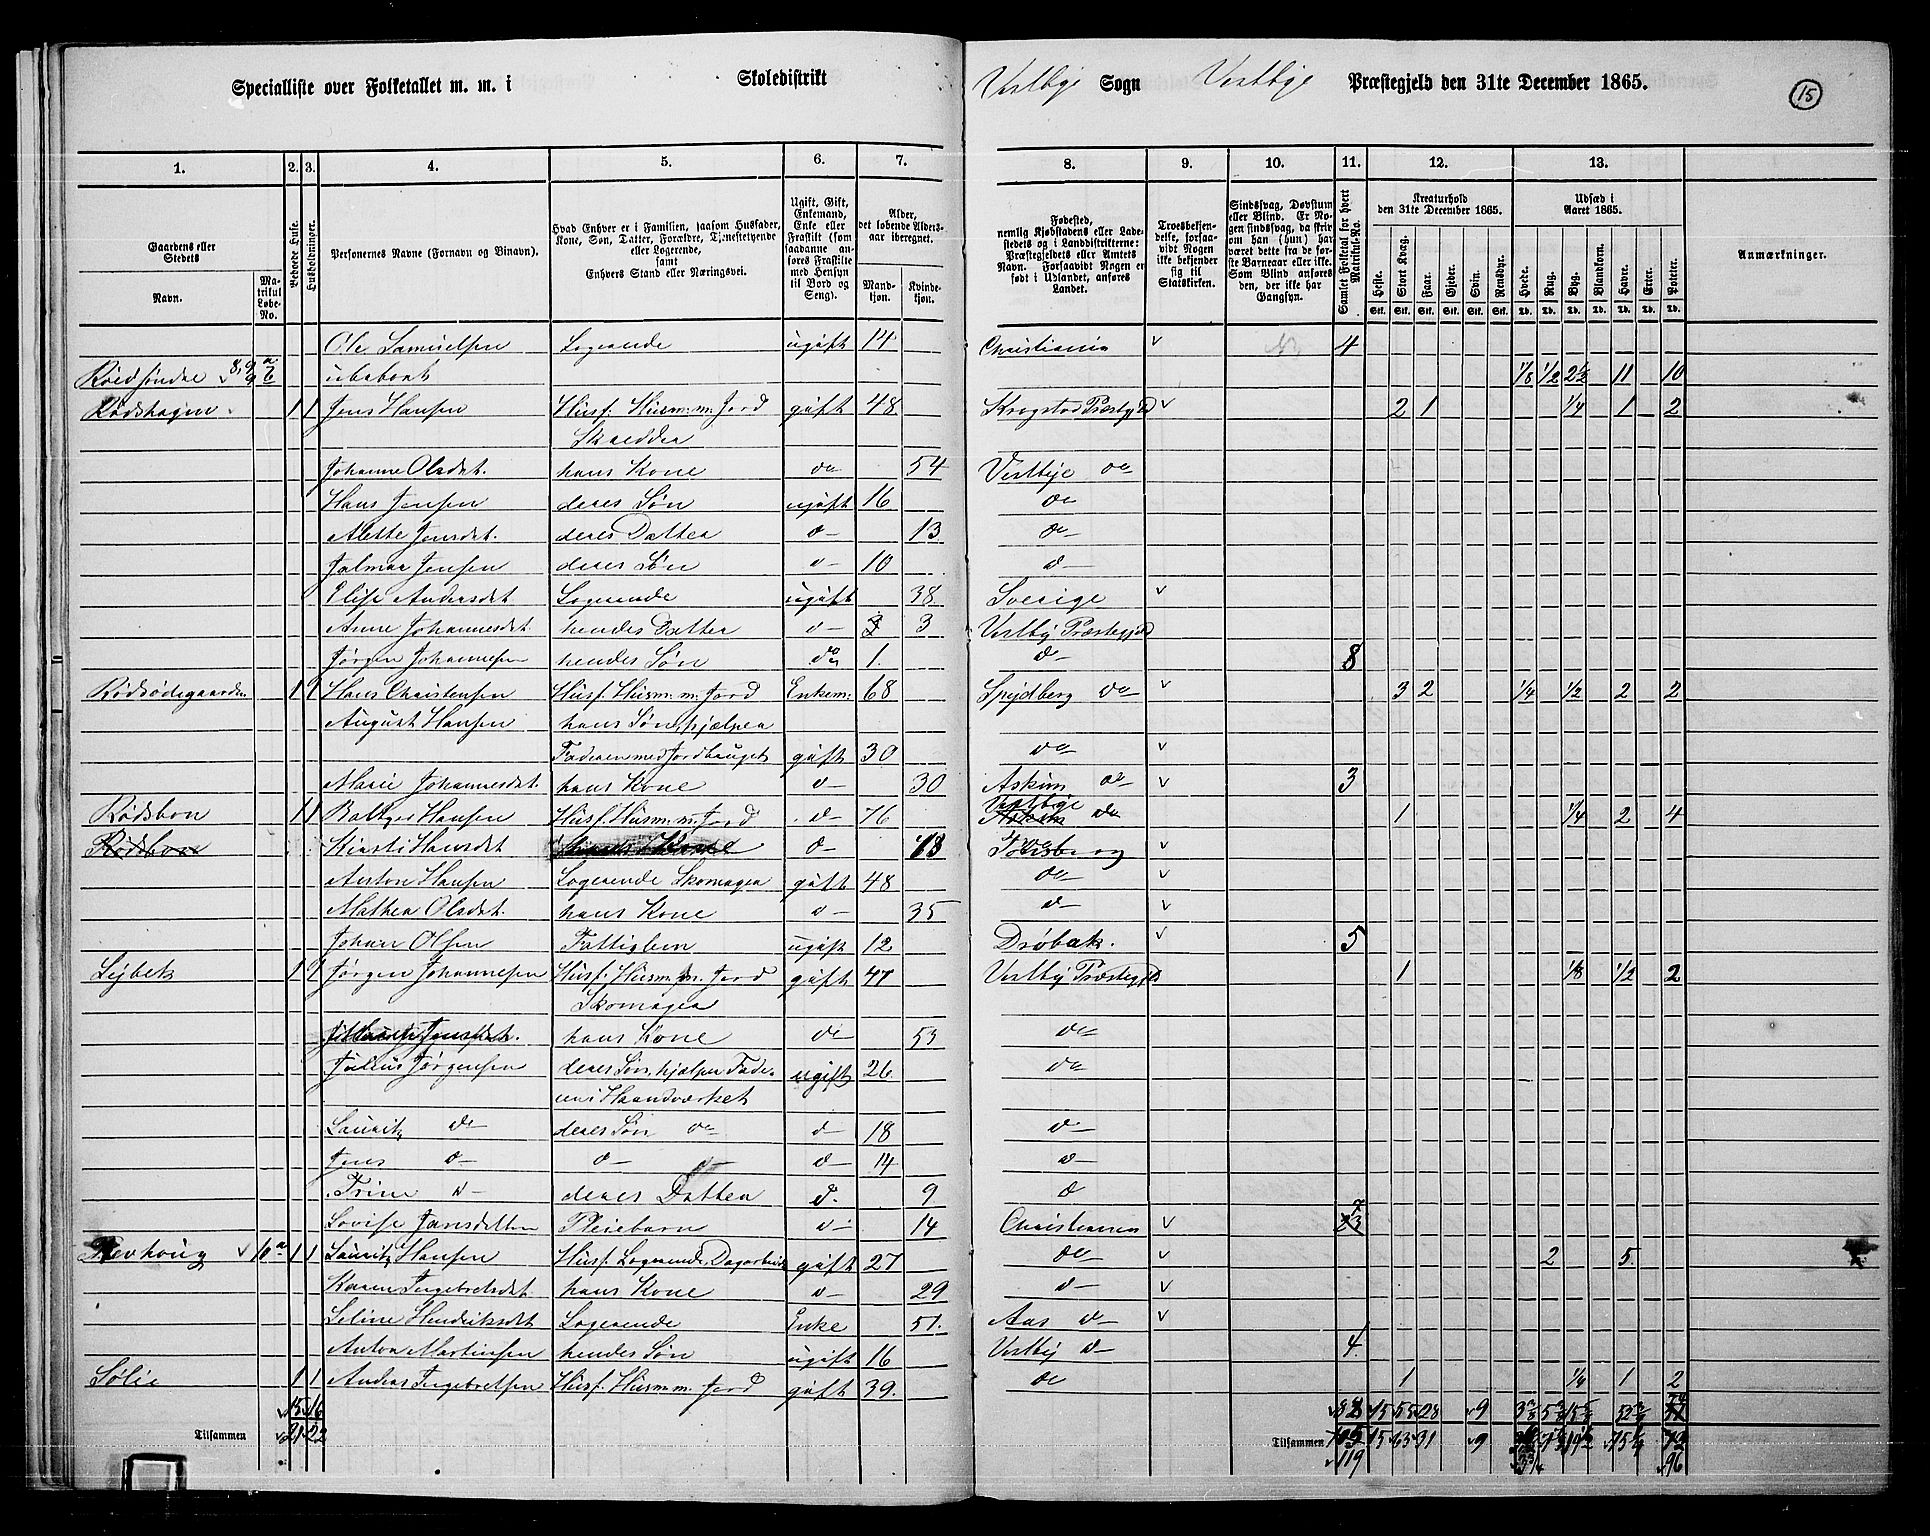 Specialliste over Folketallet m. m. i Skoledistrikt Vestbye Sogn Vestbye Præstegjeld den 31te December 1865. 15
1. 2. 3. 4. 5. 6. 7. 8. 9. 10. 11. 12. 13.
Gaardens eller Stedets
Navn.
Matrikul Løbe-No.
Beboede Huse.
Husholdninger.
Personernes Navne (Fornavn og Binavn).
Hvad Enhver er i Familien, saasom Husfader, Kone, Søn, Datter, Forældre, Tjenestetyende eller Logerende, samt Enhvers Stand eller Næringsvei.
Ugift, Gift, Enkemand, Enke eller Fraskilt (som saadanne anføres Fraskilte med Hensyn til Bord og Seng).
Alder, det løbende Aldersaar iberegnet.
Mandkjøn. Kvindekjøn.
Fødested, nemlig Kjøbstadens eller Ladestedets og i Landdistrikterne: Præstegjeldets eller Amtets Navn. Forsaavidt Nogen er født i Udlandet, anføres Landet.
Troesbekjendelse, forsaavidt Nogen ikke bekjender sig til Statskirken.
Sindssvag, Døvstum eller Blind. Er Nogen sindssvag, da skrives om han (hun) har været dette fra de første Barneaar eller ikke. Som Blind anføres den, der ikke har Gangsyn.
Samlet Folketal for hvert Matrikul-No.
Kreaturhold den 31te December 1865.
Heste. Stort Kvæg. Faar. Gjeder. Svin. Rensdyr.
Stk. Stk. Stk. Stk. Stk. Stk.
Udsæd i Aaret 1865.
Hvede. Rug. Byg. Blandkorn. Havre. Erter. Poteter.
Td. Td. Td. Td. Td. Td. Td.
Anmærkninger.
Ole Samuelsen Logerende ugift 14 Christiania v 4
Rødsøndre ubeboet 1/8 1/2 2 1/2 11 10
Rødshagen 1 1 Jens Hansen Husf. Husm. m. Jord gift 48 Krogstad Præstegjeld v 2 1 1/4 1 2
Skrædder
Johanne Olsdat. hans Kone do 54 Vestbye do
Hans Jensen deres Søn ugift 16 do
Alette Jensdat. deres Datter d— 13 do
Jalmar Jensen deres Søn d— 10 d—
Elise Andersdat Logerende ugift 38 Sverige v
Anne Johannesdat. hendes Datter d— 3 Vestby Præstegjeld
Jørgen Johannesen hendes Søn do 1. d— 8
Rødsødegaarden 1 1 Hans Christensen Husf. Husm. m. Jord Enkem. 68 Spydberg do v 3 2 1/4 1/2 2 2
August Hansen hans Søn, hjælper
Faderen med Jordbruget gift 30 do v
Marie Johannesdat. hans Kone d— 30 Askim do v 3
Rødsbon 1 1 Baltzer Hansen Husf. Husm. m. Jord d— 76 Vestbye do 1 1/4 2 4
Kirsti Hansdat Kone d— 73 do v
Anton Hansen Logerende Skomager gift 48 do v
Mathea Olsdat. hans Kone d— 35 d— v
Johan Olsen Fattiglem ugift 12 Drøbak. v 5
Lejbek 1 1 Jørgen Johannesen Husf. Husm. m. Jord gift 47 Vestby Præstegjeld 1 1/8 1/2 2
Skomager
Jensdat. hans Kone do 53 do
Julius Jørgensen deres Søn, hjælper Fade- ugift 26 do
ren i Haandværket
Lauritz do deres Søn do d— 18 d—
Jens d— d— d— d— 14 d—
Trine d— deres Datter d. 9 d
Lovise Jansdatter Pleiebarn d— 14 Christiania v 7
Revhoug v 1 1 Lauritz Hansen Husf. Logerende, Dagarbeider gift 27 do v 2 5
Karen Ingebretsdat. hans Kone d— 29 d— v
Seline Hendriksdat Logerende Enke 51. Aas d— v
Anton Martinsen hendes Søn ugift 16 Vestby d— 4
Sølie 1 1 Anders Ingebretsen Husf. Husm. m. Jord gift 39. do 1 1/4 1 2
15 16 88 15 55 28 9
Tilsammen 21 22 Tilsammen 105 15 63 31 9
119 96